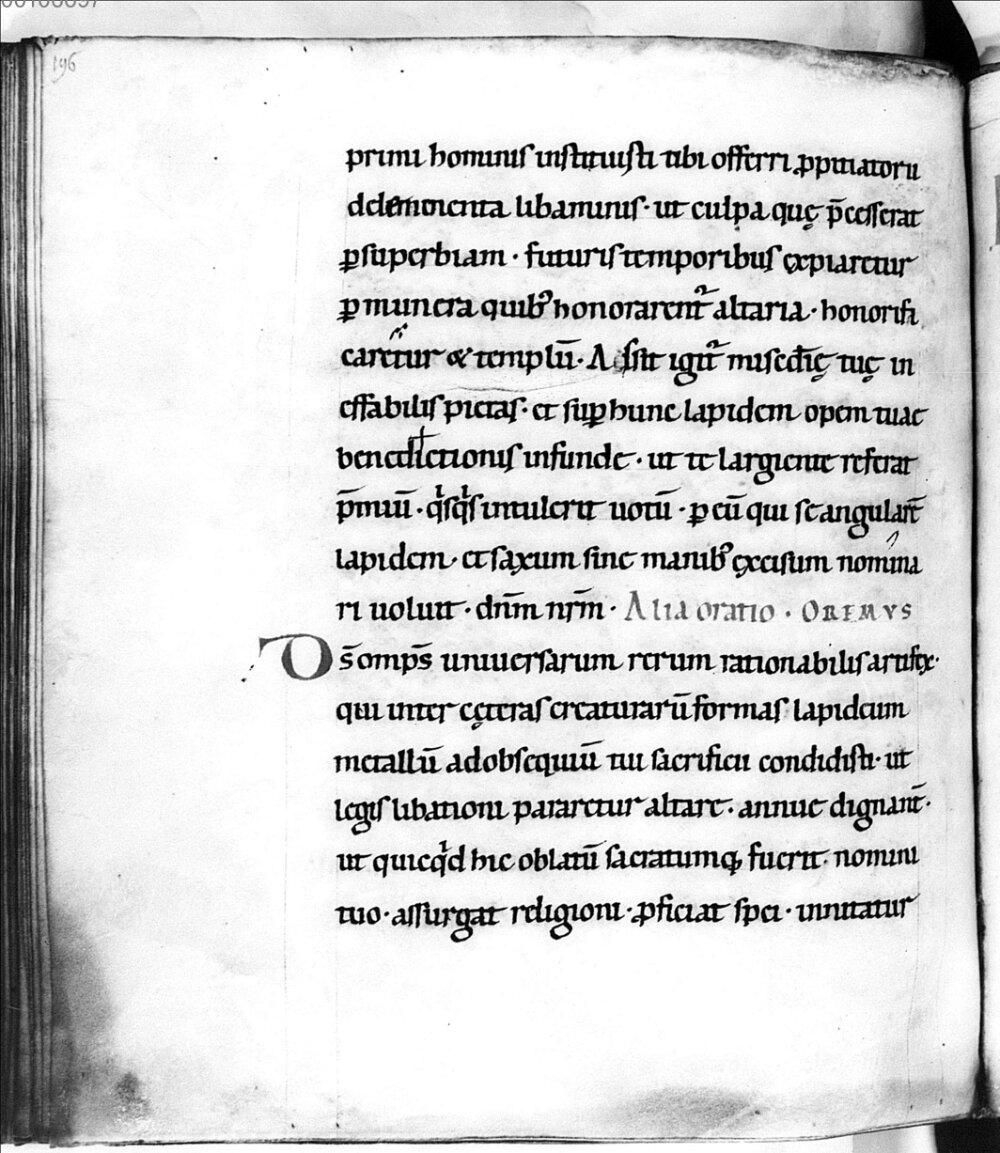 196
primi hominis instituisti tibi offerri ꝓpitiatorii
delementa libaminis· ut culpa quę p̄cesserat
ꝑsuperbiam · futuris temporibus ęxpiaretur
ꝑ munera quib᾽ honorarent᷑ altaria · honorifi
caretur & templū· Assit igit᷑ misedīę tuę in
effabilis pietas· et suꝑ hunc lapidem opem tuae
benedictionis infunde · ut te largiente referat
p̄miū · qͥsqͥs intulerit uotū · ꝑ eū qui se angularē
lapidem · et saxum sine manib᾽ ęxcisum nomina
ri uoluit · dn̄m nr̄m · Alia oratio · OREMVS
Ds̄ omps̄ uniuersarum rerum rationabilis artifex·
qui inter cęteras creaturarū formas lapideum
metallū ad obsequiū tui sacrificii condidisti· ut
legis libationi pararetur altare · annue dignant̄ ·
ut quicqͥd hic oblatū sacratumqꝫ fuerit · nomini
tuo · assurgat religioni · ꝓficiat spei · innitatur